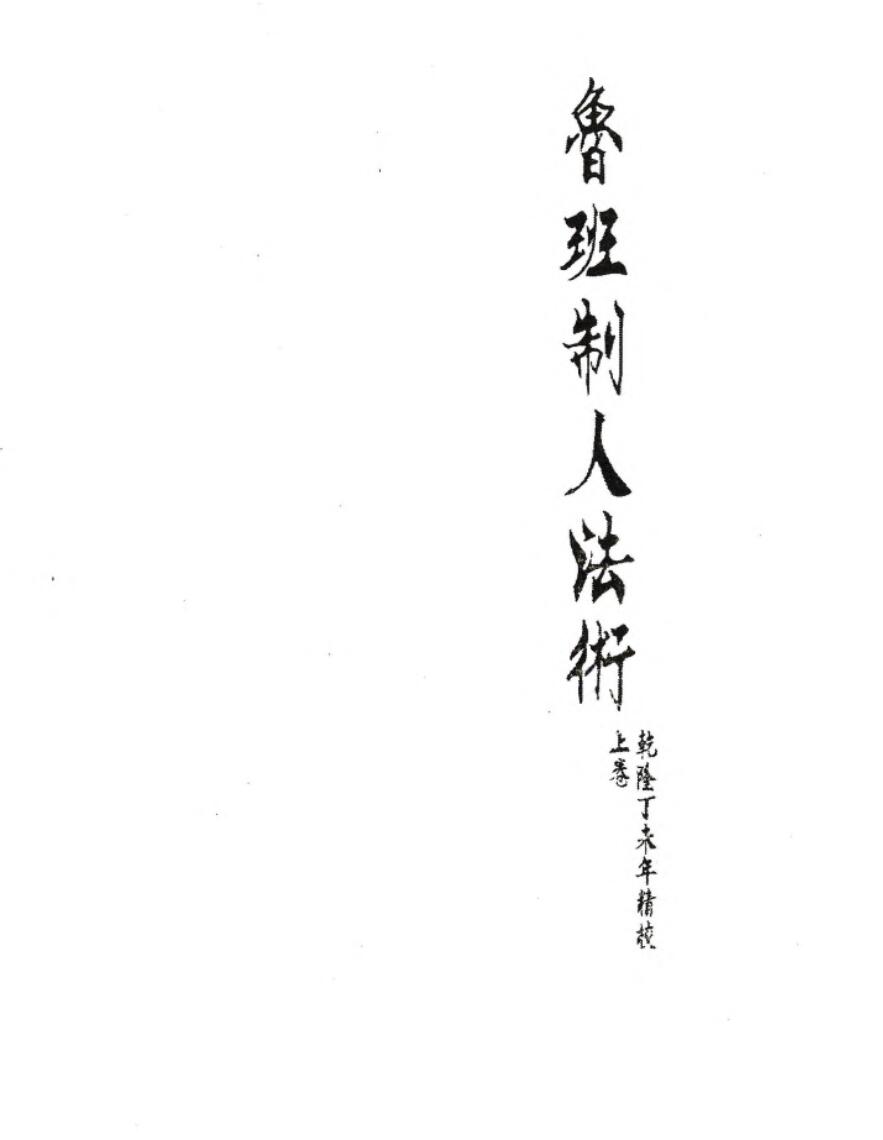 魯班制人法術
乾隆丁未年精
上卷